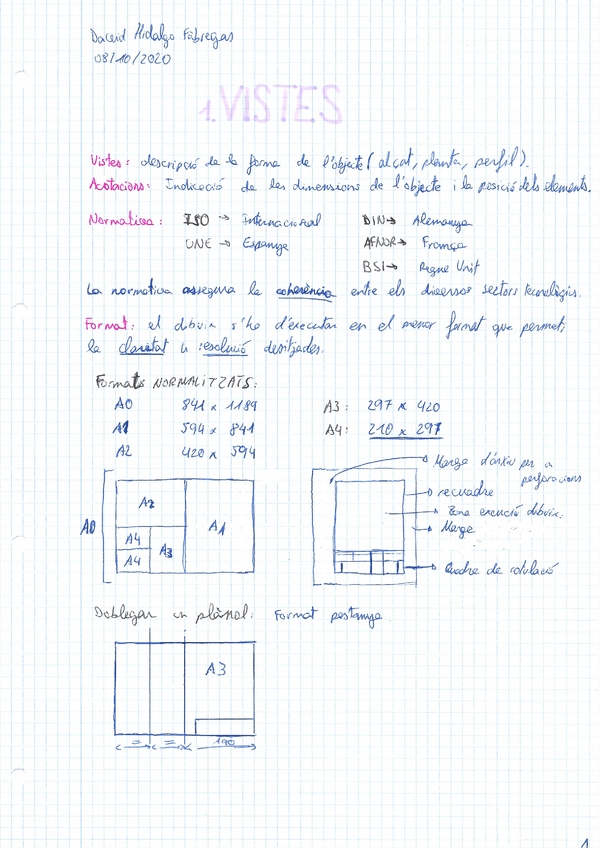 David Hidalgo Fàbregas
08/10/2020
1.VISTES
Vistes: descripció de la forma de l'objecte (alçat, planta, perfil).
Acotacions: Indicació de les dimensions de l'objecte i la posició dels elements.
Normativa: ISO → Internacional DIN → Alemanya
UNE → Espanya AFNOR → França
BSI → Regne Unit
La normativa assegura la coherència entre els diversos sectors tecnològics.
Format: el dibuix s'ha d'executar en el menor format que permeti
la claretat i resolució desitjades.
Formats NORMALITZATS:
A0 841 x 1189 A3: 297 x 420
A1 594 x 841 A4: 210 x 297
A2 420 x 594
Marge d'arxiu per a
perforacions
recuadre
Zona execució dibuix
Marge
Quadre de rotulació
A0
A2
A1
A4
A3
A4
Doblegar un plànol: Format pestanya
A3
= = 190
1